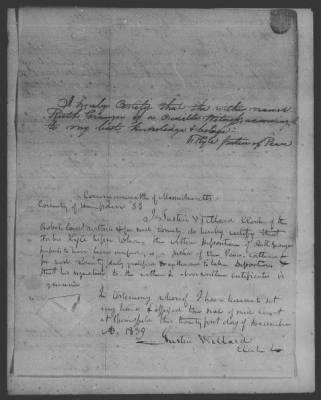 I hereby Certify that the within named
Ruth Granger is a Credible Witness according
to my best knowledge & belief
Justice of Peace
Commonwealth of Massachusetts
County of Hampden SS
I Justin Willard Clerk of the
Probate Court within & for said County do hereby certify that
the within Deposition of Ruth Granger
purports to have been is a Justice of the Peace within &
for said County duly qualified & authorized to take Depositions &
that his signature to the within & above written certificates is
genuine
In testimony whereof I have hereunto set
my hand & affixed the seal of said Court
at Springfield this twenty first day of December
AD. 1839
Justin Willard
Clerk